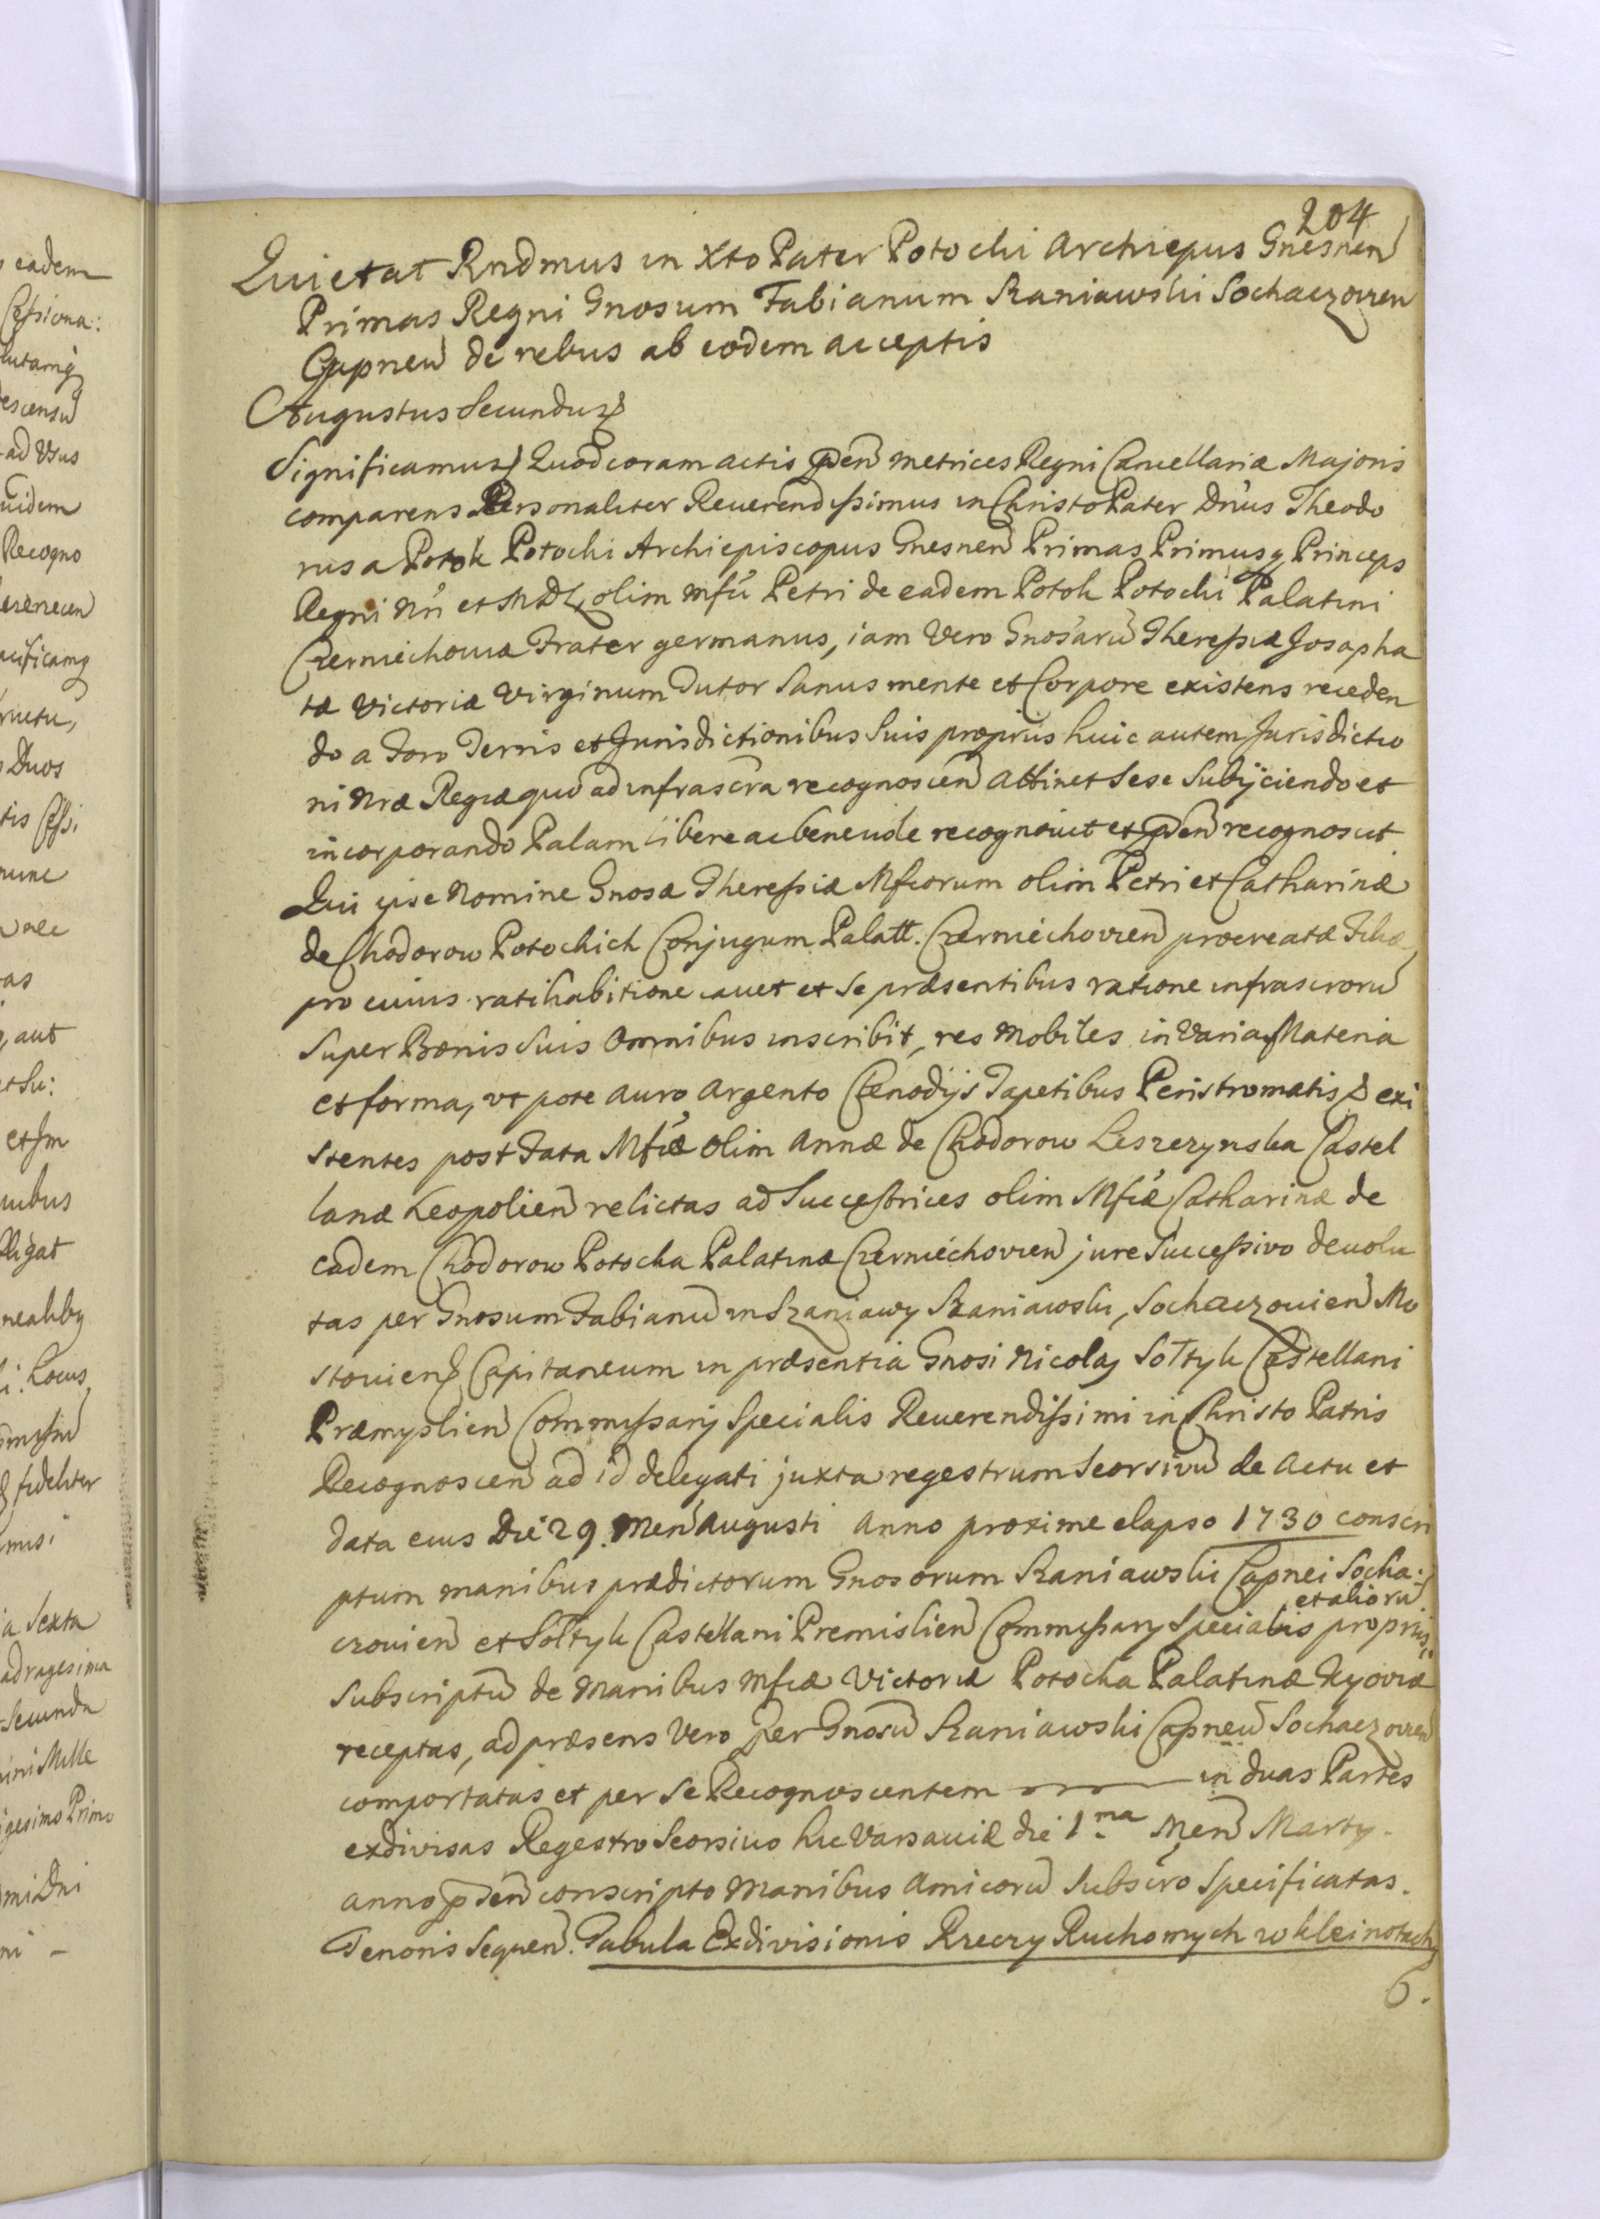 204
Quietat Rndmus in Xto Pater Potocki Archiepus Gnesnen
Primas Regni Gnosum Fabianum Szaniawski Sochaczovien
Capneū de rebus ab eodem acceptis
Augustus Secundus
Significamus Quod coram actis pn̄ Metrices Regni Cancellariæ Majoris
comparens Personaliter Reuerendissimus in Christo Pater Dn̄us Theodo
rus a Potok Potocki Archiepiscopus Gnesnen Primas Primusq Princeps
Regni Nri et MDL, olim Mfci Petri de eadem Potok Potocki Palatini
Czerniechoviæ Frater germanus, iam Vero Gnosarū Theressiæ Josapha
tæ Victoriæ Virginum Tutor Sanus mente et Corpore existens receden
do a Foro Terris et Jurisdictionibus Suis proprijs huic autem Jurisdictio
ni Nræ Regiæ quo ad infrascra recognoscen attinet Sese Subijciendo et
incorporando Palam libere ac beneuole recognouit et pn̄ recognoscit
Qui ipse Nomine Gnosæ Theressiæ Mficorum olim Petri et Catharinæ
de Chodorow Potockich Conjugum Palatt. Czerniechovien procreatæ Filiæ,
pro cuius ratihabitione cauet et Se præsentibus ratione infrascrorū
Super Bonis Suis Omnibus inscribit, res Mobiles in Varia Materia
et forma, vt pote Auro Argento Clenodijs Tapetibus Peristromatis & exi
stentes post Fata Mfcæ olim Annæ de Chodorow Leszczynska Castel
lanæ Leopolien relictas ad Successrices olim Mfcæ Catharinæ de
eadem Chodorow Potocka Palatinæ Czerniechovien jure Successivo deuolu
tas per Gnosum Fabianū in Szaniawy Szaniawski, Sochaczouien Mo
stouien Capitaneum in præsentia Gnosi Nicolaj Sołtyk Castellani
Præmyslien Commissarij Specialis Reuerendissimi in Christo Patris
Recognoscen ad id delegati juxta regestrum Seorsivū de Actu et
data eius Die 29. Men Augusti Anno proxime elapso 1730 conscri
ptum manibus prædictorum Gnosorum Szaniawski Capnei Socha:
czouien et Sołtyk Castellani Premislien Commissarij Specialis et aliorū proprijs
Subscriptū de Manibus Mficæ Victoriæ Potocka Palatinæ Kyoviæ
receptas, ad præsens Vero per Gnosū Szaniawski Capneū Sochaczovien
comportatas et per Se Recognoscentem in duas Partes
exdivisas Regestro Seorsiuo hic Varsauiæ die 1ma Men Martij.
anno pn̄ conscripto Manibus Amicorū Subscro Specificatas.
Tenoris Sequen. Tabula Exdivisionis Rzeczy Ruchomych w kleinotach
6.